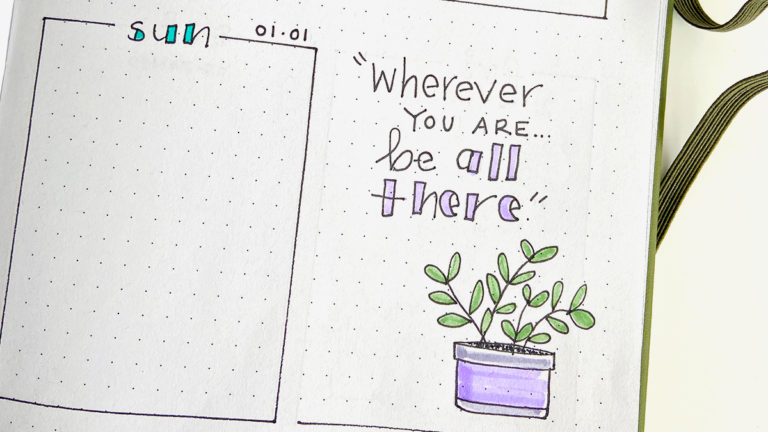 sun 01.01
"Wherever
YOU ARE...
be all
there"